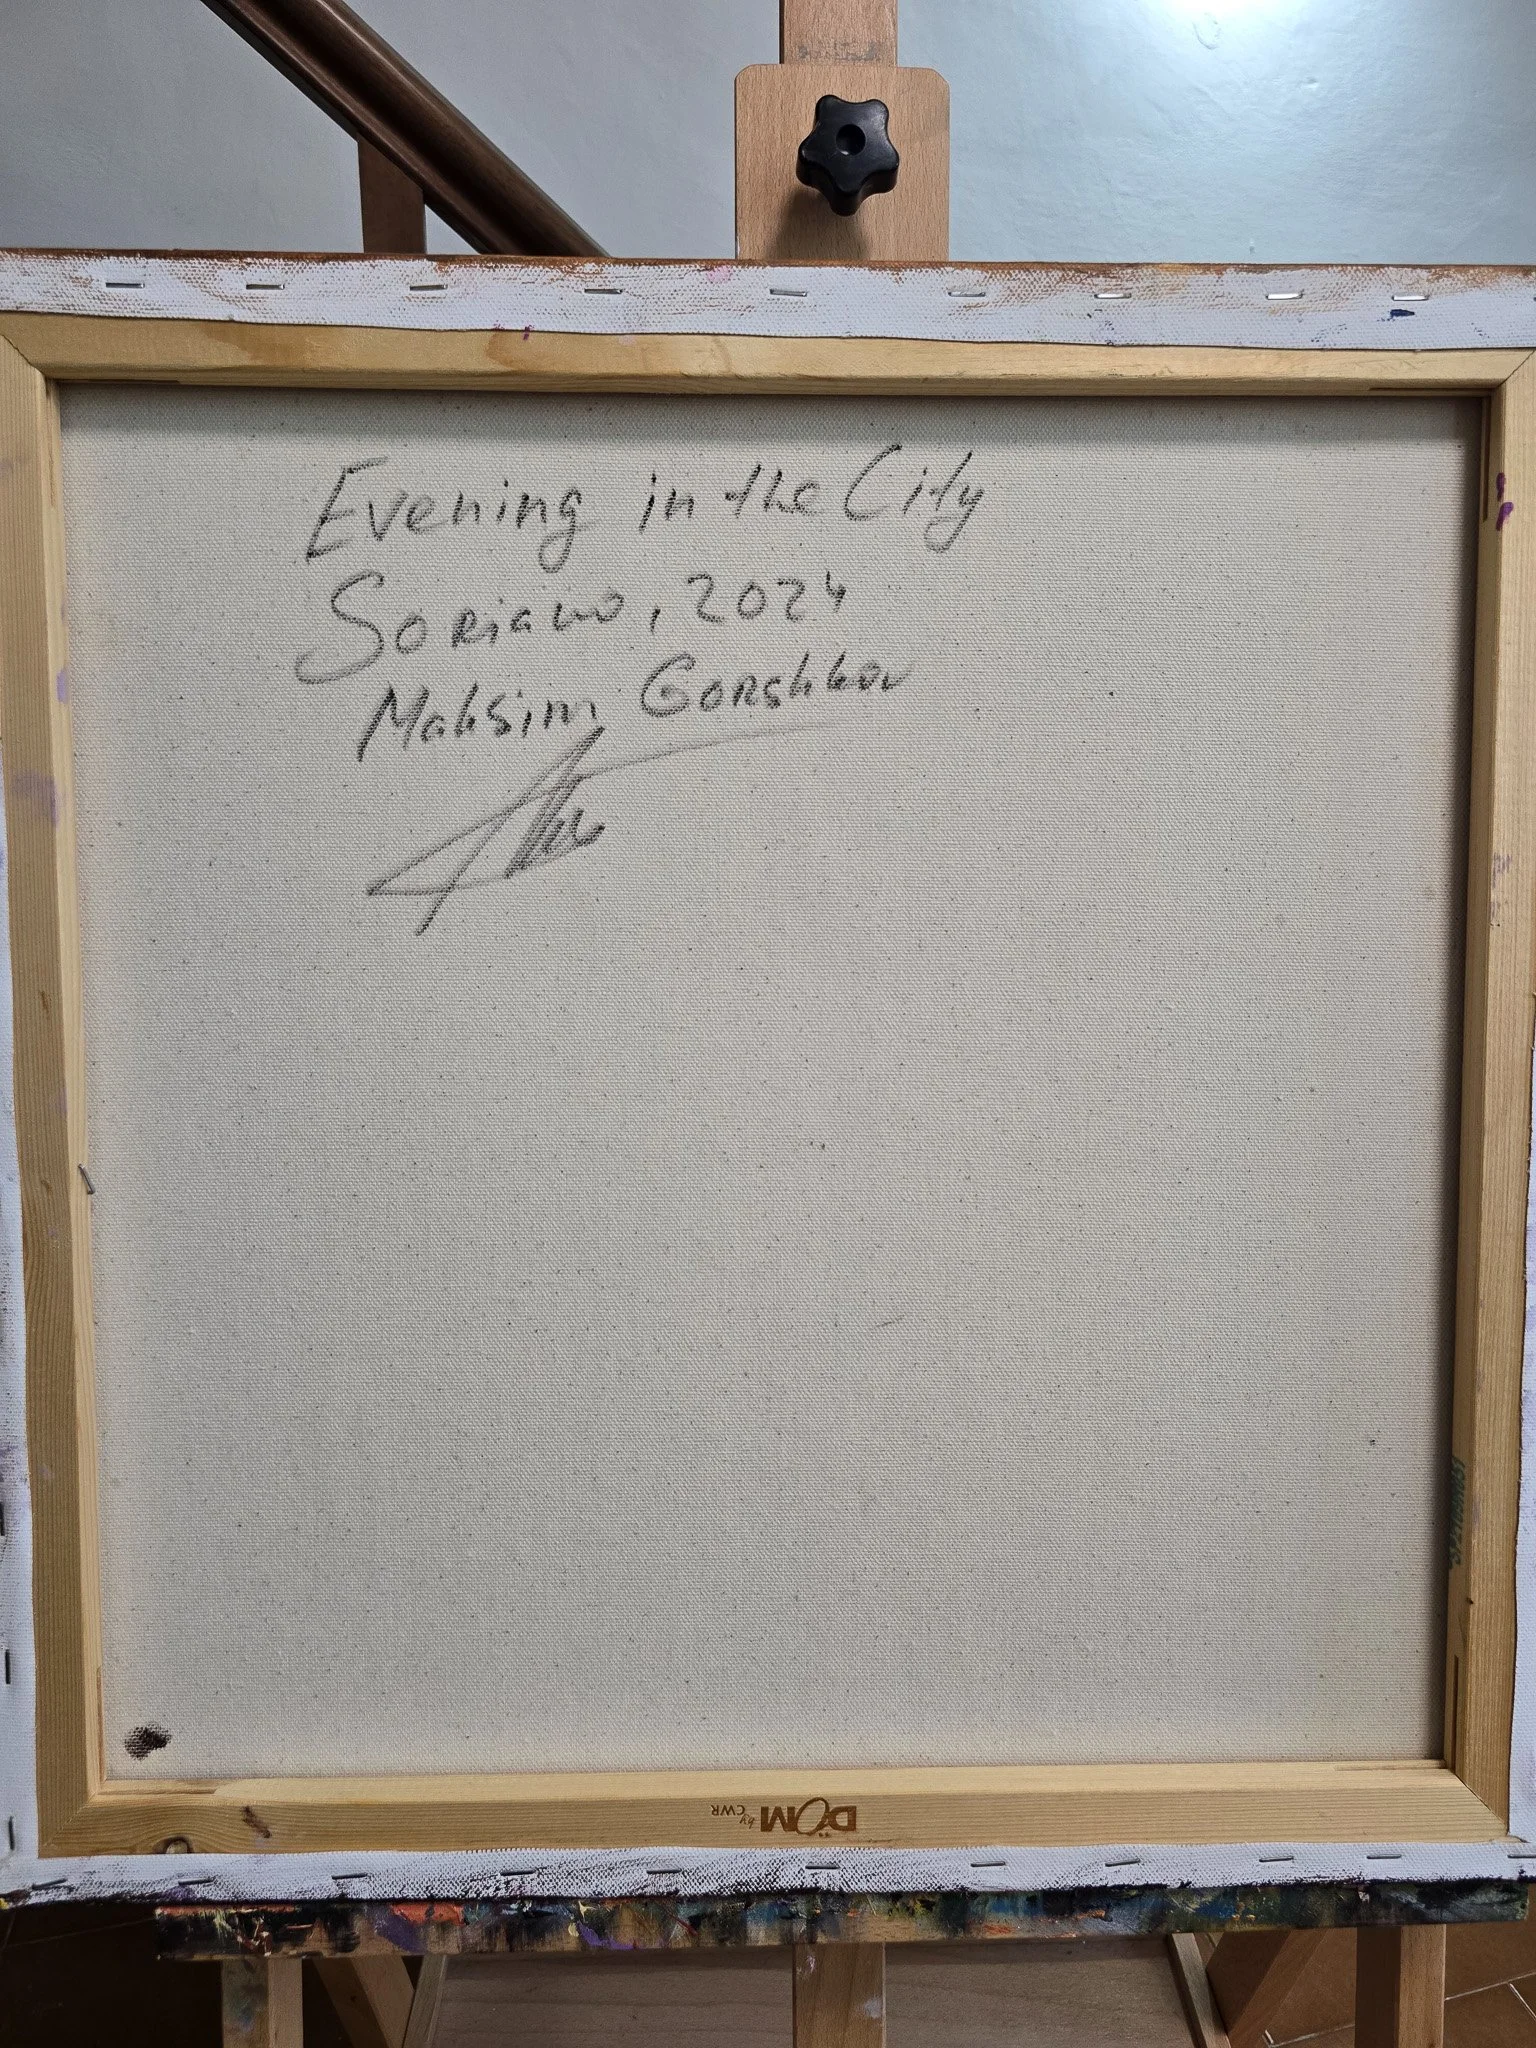 Evening in the City
Soriano, 2024
Maksim Gorshkov
DOM by CWR